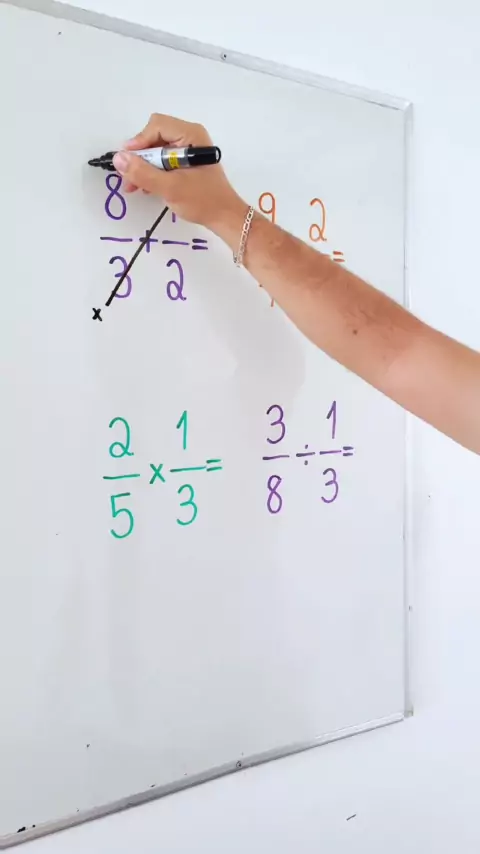 8/3 + /2 =
9 2 =
x
2/5 x 1/3 =
3/8 ÷ 1/3 =